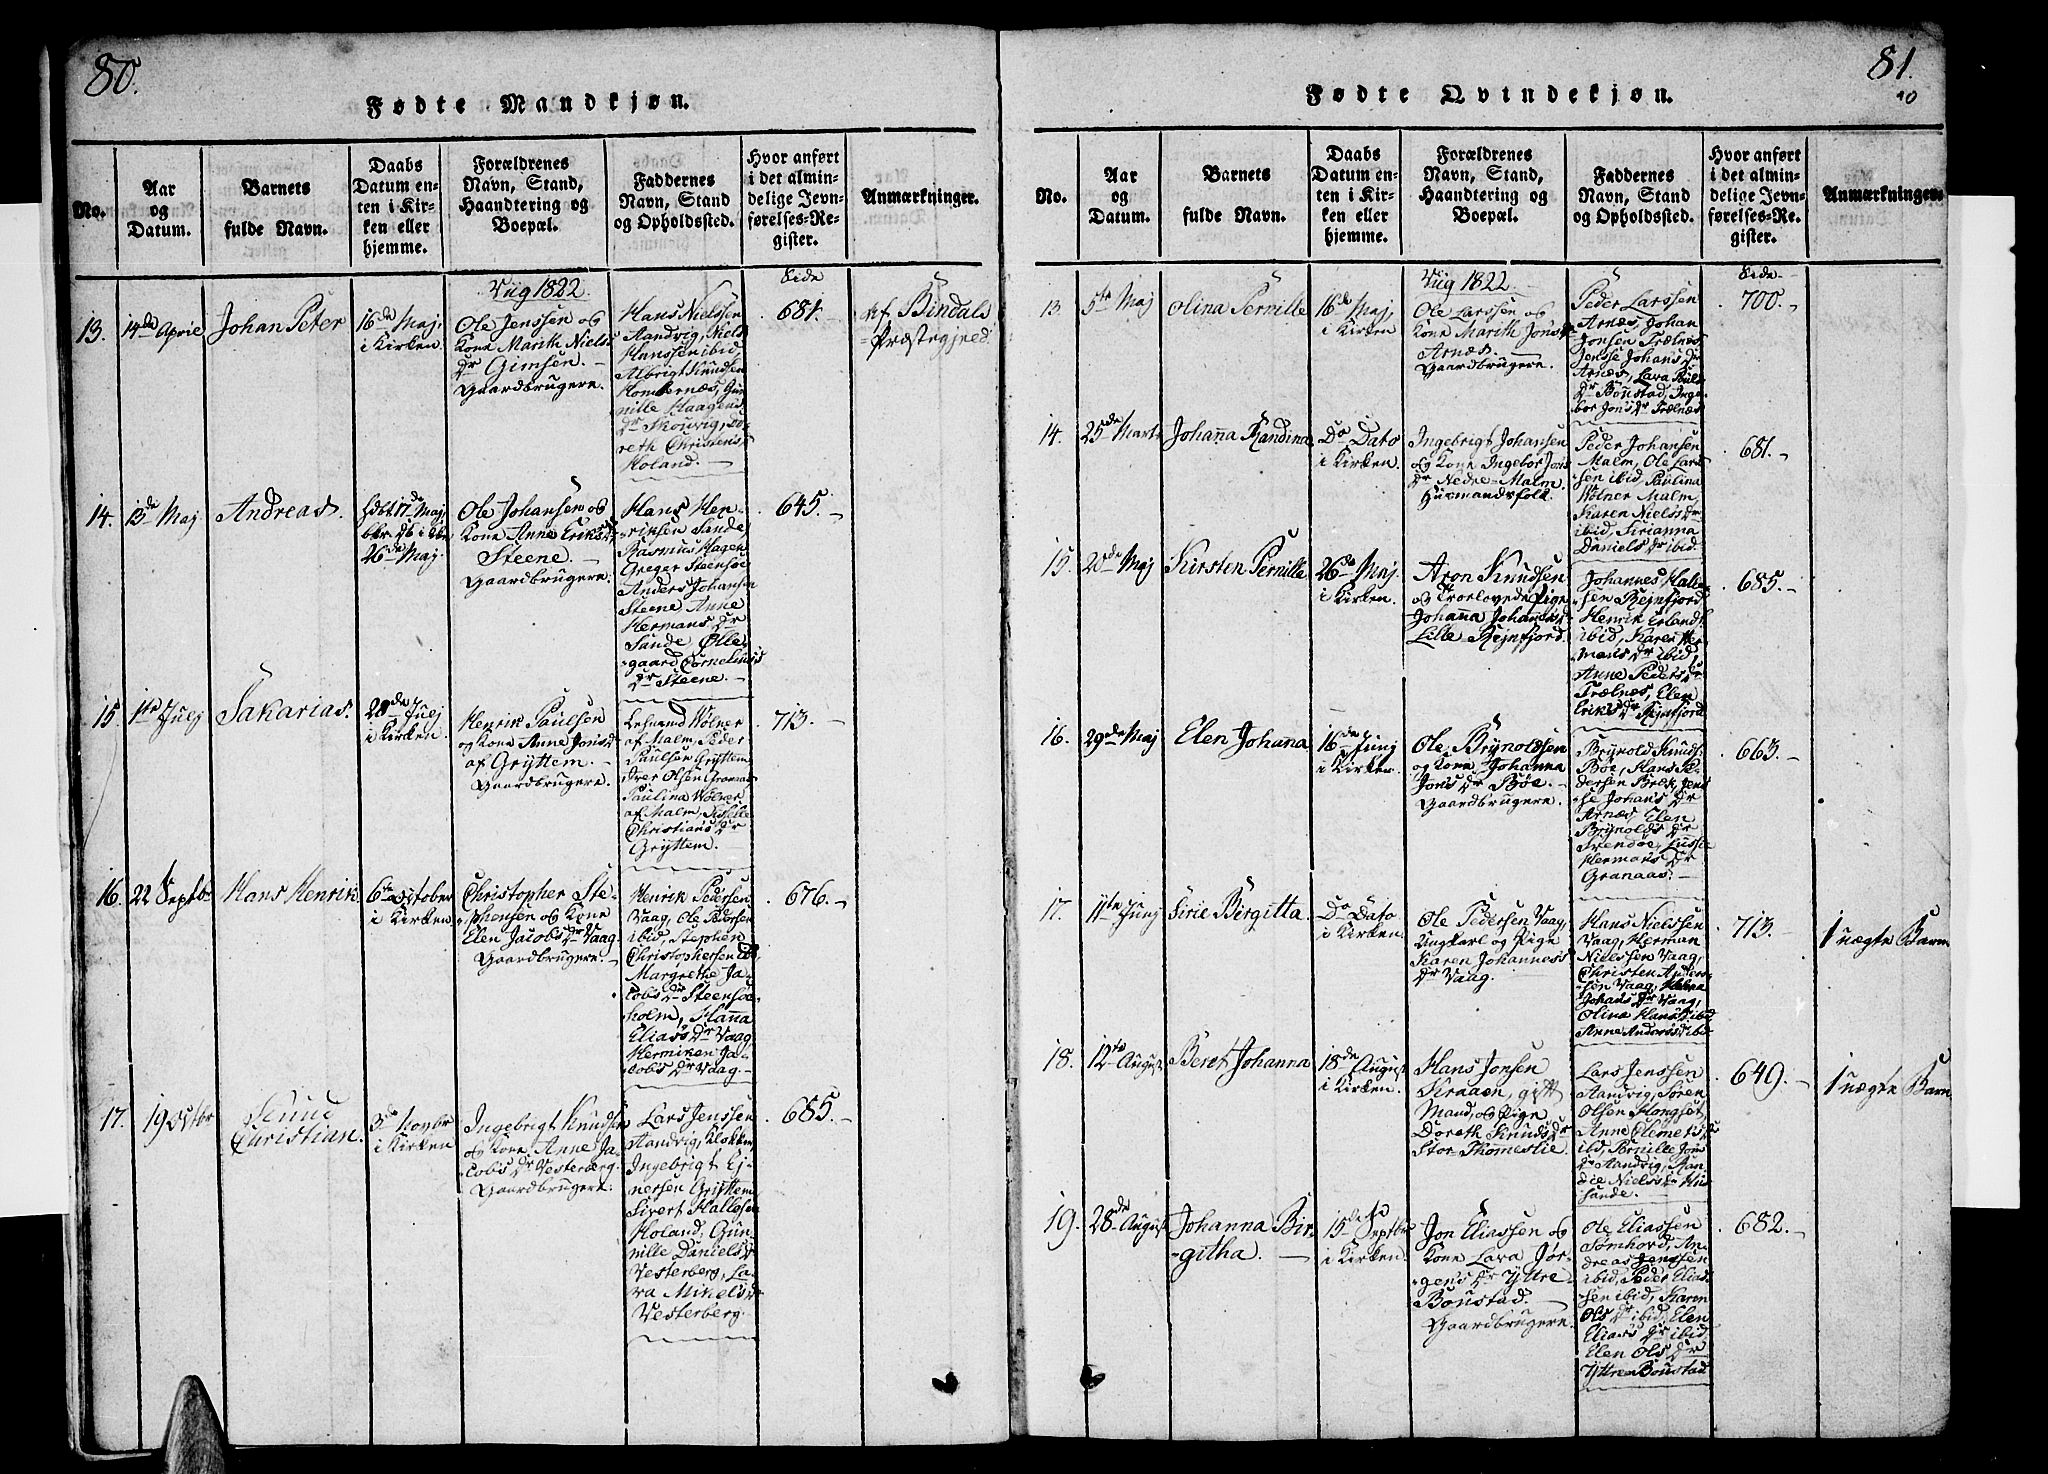 80.
Fødte Mandkjøn.
No.
Aar
og
Datum.
Barnets
fulde Navn.
Daabs
Datum en-
ten i Kir-
ken eller
hjemme.
Forældrenes
Navn, Stand,
Haandtering og
Boepæl.
Faddernes
Navn, Stand
og Opholdssted.
Hvor anført
i det almin-
delige Jevn-
førelses-Re-
gister.
Anmærkninger.
Viig 1822.
Side
13.
14de April
Johan Peter
16de Maj,
i Kirken.
Ole Jenssen og
Kone Marith Niels
Dr Gimsen.
Gaardbrugere.
Hans Nielssen
Aandvig, Niels
Hanssen ibid,
Albrigt Knudsen
Hom̅ernæs, Gu-
nille Haagens
Dr Skouvig, Do-
reth Christens
Holand.
681.
af Bindals
Præstegjeld
14.
13de Maj
Andreas.
Hdbt 17de Maj,
26de Maj
Ole Johansen og
Kone Anne Eriks Dr
Steene.
Gaardbrugere.
Hans Hen-
riksen Sande,
Rasmus Hagen
Greger Steensøe
Anders Johansen
Steene Anne
Hermans Dr
Sande Olle-
gaard Cornelius's
Dr Steene.
645.
15.
1te Julj
Sakarias.
28de Julj
i Kirken.
Henrik Paulsen
og Kone Anne Jons Dr
af Gryttem.
Gaardbrugere.
Lehnerd Wolner
af Malm, Peder
Paulsen Gryttem
Iver Olsen Granaas
Paulina Wolner
af Malm,
Christians Dr
Gryttem.
713.
16.
22 Septbr
Hans Henrik
6te October
i Kirken
Christopher Ste-
phensen og Kone
Elen Jacobs Dr Vaag
Gaardbrugere.
Henrik Pedersen
Vaag, Ole Pedersen
ibid, Stephen
Christophersen ibd,
Margrethe Ja-
cobs Dr Steensøe-
holm, Hanna
Elias's Dr Vaag
Hermiken Ja-
cobs Dr Vaag
676.
17.
19 Octbr
Knud
Christian.
3de Novbr
i Kirken
Ingebrigt Knudsen
og Kone Anne Ja-
cobs Dr Vesterberg.
Gaardbrugere.
Lars Jenssen
Aandvig, Klokker,
Ingebrigt Ej-
nersen Gryttem,
Sivert Hallesen
Holand, Gun-
nille Daniels Dr
Vesterberg, La-
ra Mikels Dr
Vesterberg.
685.
81.
10
Fødte Qvindekjøn.
No.
Aar
og
Datum.
Barnets
fulde Navn.
Daabs
Datum en-
ten i Kir-
ken eller
hjemme.
Forældrenes
Navn, Stand,
Haandtering og
Boepæl.
Faddernes
Navn, Stand
og Opholdssted.
Hvor anført
i det almin-
delige Jevn-
førelses-Re-
gister.
Anmærkninger.
Viig 1822.
Side
13.
5te Maj
Olina Pernille
16de Maj,
i Kirken
Ole Larssen og
Kone Marith Jons Dr
Arnæs.
Gaardbrugere.
Peder Larssen
Arnæs, Johan
Jonsen Trælnes
Jensse Johans Dr
Arnæs, Lara Pauls
Dr Boustad, Inge-
bor Jons Dr Trælnæs
700.
14.
25de Marts
Johanna Randina
Do Dato
i Kirken.
Ingebrigt Johansen
og Kone Ingebor Jons
Dr Nedre-Malm.
Huusmandsfolk.
Peder Johansen
Malm, Ole Lars-
sen ibid Paulina
Wolner Malm,
Karen Niels Dr
ibid, Sirianna
Daniels Dr ibid.
681.
15.
20de Maj
Kirsten Pernille
26de Maj.
i Kirken.
Aron Knudsen
og Troelovede Pige
Johanna Johannes D
Lille Rejnfjord.
Johannes Halle-
sen Rejnfjord
Henrik Erlands.
ibid, Karen Her-
mans Dr ibid,
Anne Peders Dr
Trælnes, Elen
Eriks Dr Rejnfjord
685.
16.
29de Maj
Elen Johana
16de Junj
i Kirken.
Ole Brynoldsen
og Kone Johanna
Jons Dr Bøe.
Gaardbrugere.
Brynold Knuds.
Bøe, Hans Pe-
dersen Bræk, Jens-
se Johans Dr
Arnæs, Elen
Brynolds Dr
Svendøe, Lusse
Hermans Dr
Granaas.
663.
17.
11te Junj
Sirie Birgitta
Do Dato
i Kirken.
Ole Pedersen Vaag,
Ungkarl og Pige
Karen Johannes's
Dr Vaag.
Hans Nielssen
Vaag, Herman
Nielssen Vaag,
Christen Anders-
sen Vaag,
Johans Dr Vaag,
Olina Hans D ibid
Anne Anders D ibid
713.
1 uægte Barn
18.
12te August
Beret Johanna
18de August
i Kirken.
Hans Jonsen
Kraaen, gift
Mand, og Pige
Doreth Knuds Dr
Stor-Thomeslie.
Lars Jenssen
Aandvig, Søren
Olsen Hongset
Anne Clemets Dr
ibd, Pernille Jons
Dr Aandvig, Ran-
die Niels Dr
sande.
649.
1 uægte Barn
19.
28de August
Johanna Bir-
githa.
15de Septbr
i Kirken.
Jon Eliassen og
Kone Lara Jør-
gens Dr Yttre
Boustad.
Gaardbrugere.
Ole Eliassen
Sømhord, An-
dreas Jenssen
ibid, Peder Elias-
sen ibid, Karen
Ols Dr ibid, Elen
Elias's Dr ibid,
Elen Ols Dr
Yttre Boustad
682.